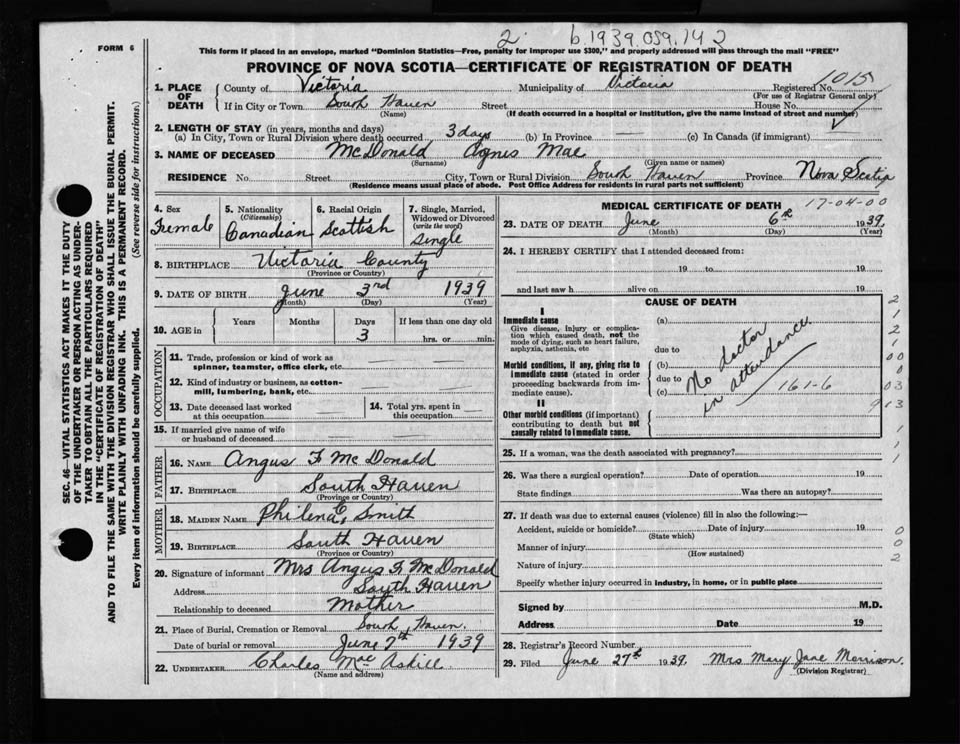 2. b.1939.059.142
FORM 6
This form if placed in an envelope, marked "Dominion Statistics—Free, penalty for improper use $300," and properly addressed will pass through the mail "FREE"
PROVINCE OF NOVA SCOTIA—CERTIFICATE OF REGISTRATION OF DEATH
1015
1. PLACE OF DEATH County of Victoria Municipality of Victoria Registered No.
(For use of Registrar General only)
If in City or Town South Haven Street House No.
(Name) (If death occurred in a hospital or institution, give the name instead of street and number)
2. LENGTH OF STAY (in years, months and days)
(a) In City, Town or Rural Division where death occurred 3 days (b) In Province — (c) In Canada (if immigrant)
3. NAME OF DECEASED McDonald Agnes Mae
(Surname) (Given name or names)
RESIDENCE No. Street City, Town or Rural Division South Haven Province Nova Scotia
(Residence means usual place of abode. Post Office Address for residents in rural parts not sufficient)
4. Sex Female
5. Nationality (Citizenship) Canadian
6. Racial Origin Scottish
7. Single, Married, Widowed or Divorced (write the word) Single
8. BIRTHPLACE Victoria County
(Province or Country)
9. DATE OF BIRTH June 3rd 1939
(Month) (Day) (Year)
10. AGE in Years Months Days If less than one day old
3 hrs. or min.
OCCUPATION
11. Trade, profession or kind of work as spinner, teamster, office clerk, etc.
12. Kind of industry or business, as cotton-mill, lumbering, bank, etc.
13. Date deceased last worked at this occupation
14. Total yrs. spent in this occupation
15. If married give name of wife or husband of deceased
FATHER
16. NAME Angus F McDonald
17. BIRTHPLACE South Haven
(Province or Country)
MOTHER
18. MAIDEN NAME Philena E. Smith
19. BIRTHPLACE South Haven
(Province or Country)
20. Signature of informant Mrs Angus F. McDonald
Address South Haven
Relationship to deceased Mother
21. Place of Burial, Cremation or Removal South Haven.
Date of burial or removal June 7th 1939
22. UNDERTAKER Charles Mac Askill
(Name and address)
MEDICAL CERTIFICATE OF DEATH 17-04-00
23. DATE OF DEATH June 6th 1939
(Month) (Day) (Year)
24. I HEREBY CERTIFY that I attended deceased from:
19 to 19
and last saw h alive on 19
CAUSE OF DEATH
I
Immediate cause
Give disease, injury or complication which caused death, not the mode of dying, such as heart failure, asphyxia, asthenia, etc
(a)
due to
Morbid conditions, if any, giving rise to immediate cause (stated in order proceeding backwards from immediate cause).
(b)
due to
(c)
No doctor in attendance
161-6
II
Other morbid conditions (if important) contributing to death but not causally related to immediate cause.
25. If a woman, was the death associated with pregnancy?
26. Was there a surgical operation? Date of operation 19
State findings Was there an autopsy?
27. If death was due to external causes (violence) fill in also the following:—
Accident, suicide or homicide? Date of injury 19
(State which)
Manner of injury
(How sustained)
Nature of injury
Specify whether injury occurred in industry, in home, or in public place
Signed by M.D.
Address Date 19
28. Registrar's Record Number
29. Filed June 27th 1939. Mrs Mary Jane Morrison.
(Division Registrar)
2
1
2
1
00
0
03
913
1
1
0
0
2
SEC. 46—VITAL STATISTICS ACT MAKES IT THE DUTY
OF THE UNDERTAKER OR PERSON ACTING AS UNDER-
TAKER TO OBTAIN ALL THE PARTICULARS REQUIRED
IN THE "CERTIFICATE OF REGISTRATION OF DEATH"
AND TO FILE THE SAME WITH THE DIVISION REGISTRAR WHO SHALL ISSUE THE BURIAL PERMIT.
WRITE PLAINLY WITH UNFADING INK. THIS IS A PERMANENT RECORD.
Every item of information should be carefully supplied. (See reverse side for instructions.)